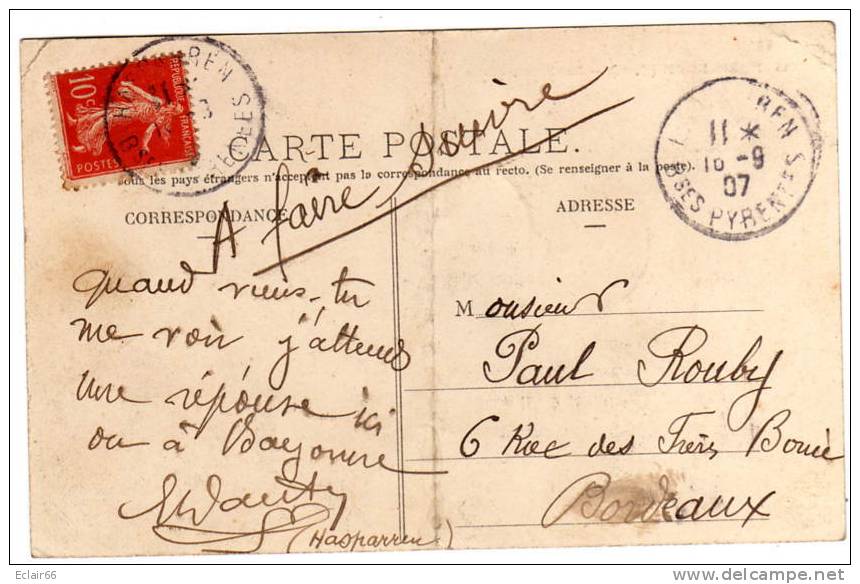 10c
REPUBLIQUE FRANÇAISE
POSTES
CARTE POSTALE.
Tous les pays étrangers n'acceptent pas la correspondance au recto. (Se renseigner à la poste).
CORRESPONDANCE
ADRESSE
A faire suivre
REN
11 *
16 -9
07
BSES PYRENEES
Quand viens-tu
me voir j'attends
une réponse ici
ou à Bayonne
(Hasparren)
Monsieur
Paul Rouby
6 Rue des Frères Bonie
Bordeaux
Eclair66
www.delcampe.net